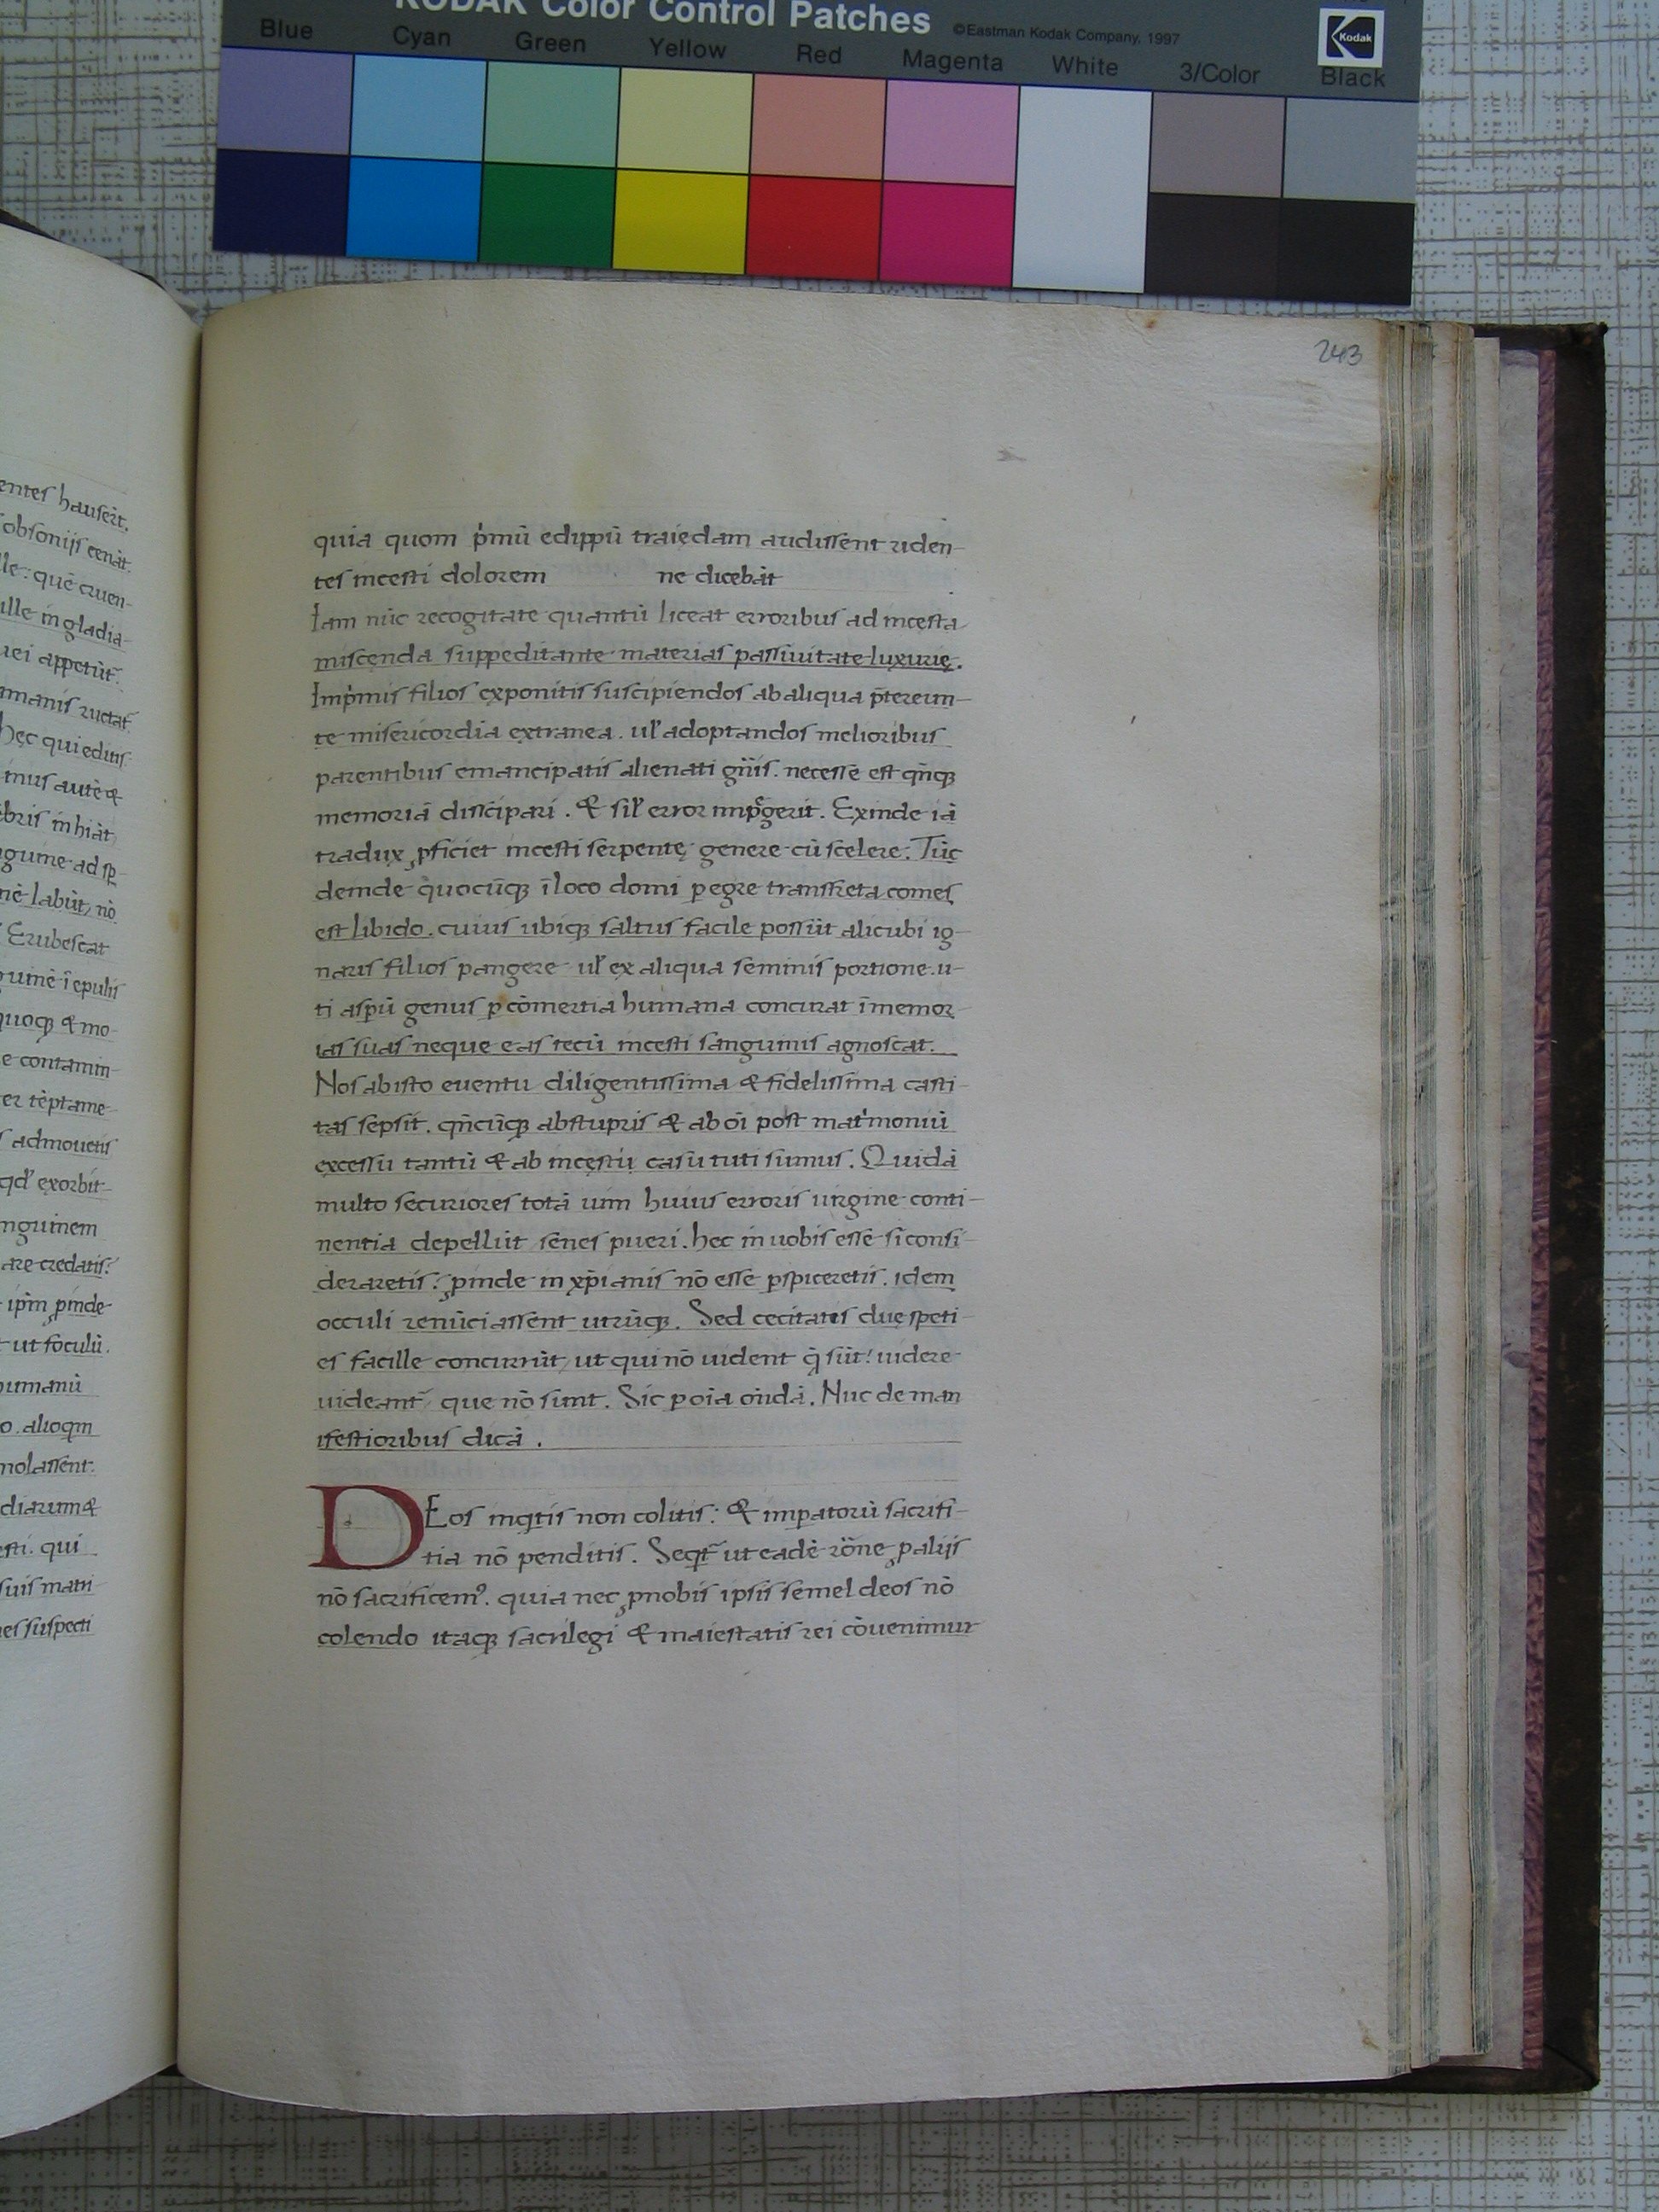 KODAK Color Control Patches
©Eastman Kodak Company, 1997
Kodak
Blue Cyan Green Yellow Red Magenta White 3/Color Black
243
entes hauserīt.
obsonijs cenāt.
lle: quē cruen-
ille in gladia-
uei appetūt
manis ructāt
hęc qui editis
mus autē &
ebris inhiāt
Erubescat
quoqꝫ & mo-
e contamin-
s admouetis
qd' exorbit-
nguinem
are credatis?
ipm ꝓinde
ut foculū.
humanū
molassent.
diarum &
esti. qui
suis matri-
es suspecti
quia quom pͥmū edippū traiędam audissent riden-
tes incesti dolorem ne dicebāt
Iam nūc recogitate quantū liceat erroribus ad incesta
miscenda suppeditante materias passiuitate luxurię.
Inpͥmis filios exponitis suscipiendos ab aliqua p̄tereun-
te misericordia extranea. ul' adoptandos melioribus
parentibus emancipatis alienati gn̄is. necesse est qn̄qꝫ
memoriā disscipari. & sil' error impͣgerit. Exinde iā
tradux ꝓficiet incesti serpente genere cū scelere. Tūc
deinde quocūqꝫ ī loco domi ꝑegre transfreta comes
est libido. cuius ubiqꝫ saltus facile possūt alicubi ig-
naris filios pangere ul' ex aliqua seminis portione. u-
ti aspū genus ꝑ cōmertia humana concurat ī memor-
ias suas neque eas tecū incesti sanguinis agnoscat.
Nos ab isto euentu diligentissima & fidelissima casti-
tas sepsit. qn̄cūqꝫ ab stupris & ab oī post matͥmoniū
excessu tantū & ab incęstū casu tuti sumus. Quidā
multo securiores totā uim huius erroris uirgine conti-
nentia depellūt senes pueri. hec in uobis esse si consi-
deraretis? ꝓinde in xp̄ianis nō esse ꝑspiceretis. idem
occuli renūciassent utrūqꝫ. Sed cecitatis due speti-
es facille concurrūt, ut qui nō uident q̄ sūt! uidere
uideant̄ que nō sunt. Sic ꝑ oīa on̄dā. Nuc de man
ifestioribus dicā.
DEos inqͥtis non colitis: & imꝑatorū sacrifi-
tia nō penditis. Seqͥt̄ ut eadē rōne ꝓ alijs
nō sacrificemꝰ. quia nec ꝓ nobis ipsis semel deos nō
colendo itaqꝫ sacrilegi & maiestatis rei cōuenimur